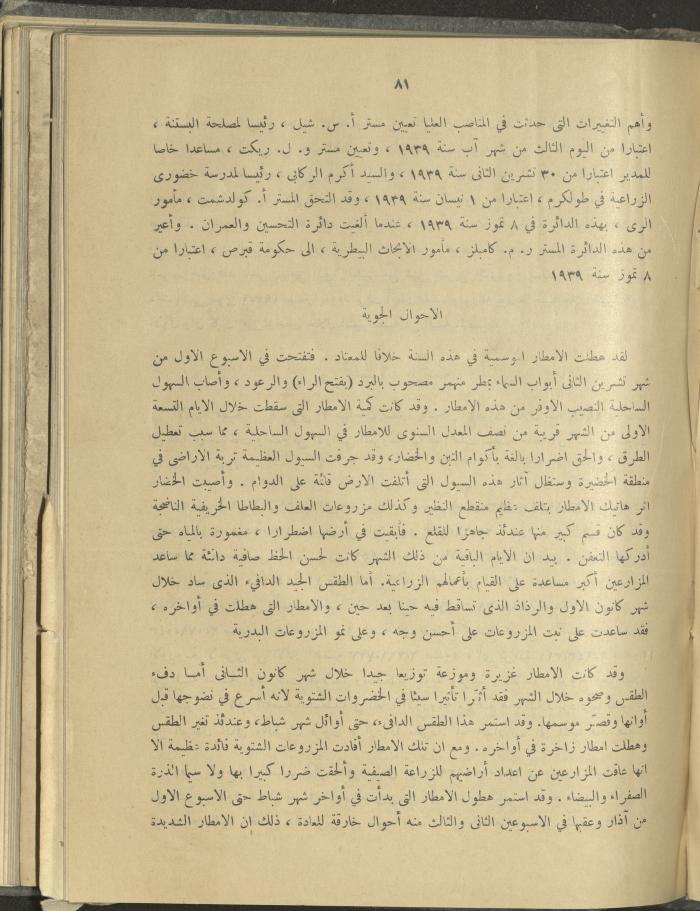 ٨١
وأهم التغييرات التى حدثت في المناصب العليا تعيين مستر أ. س. شيل ، رئيسا لمصلحة البستنة ،
اعتبارا من اليوم الثالث من شهر آب سنة ١٩٣٩ ، وتعيين مستر و. ل. ريكت ، مساعدا خاصا
للمدير اعتبارا من ٣٠ تشرين الثانى سنة ١٩٣٩ ، والسيد أكرم الركابي ، رئيسا لمدرسة خضورى
الزراعية في طولكرم ، اعتبارا من ١ نيسان سنة ١٩٣٩ ، وقد التحق المستر أ. كولدشمت ، مأمور
الرى ، بهذه الدائرة في ٨ تموز سنة ١٩٣٩ ، عندما ألغيت دائرة التحسين والعمران . وأعير
من هذه الدائرة المستر ر. م. كامبلز ، مأمور الابحاث البيطرية ، الى حكومة قبرص ، اعتبارا من
٨ تموز سنة ١٩٣٩
الاحوال الجوية
لقد هطلت الامطار الموسمية في هذه السنة خلافا للمعتاد . فتفتحت في الاسبوع الاول من
شهر تشرين الثانى أبواب السماء بمطر منهمر مصحوب بالبرد (بفتح الراء) والرعود ، وأصاب السهول
الساحلية النصيب الاوفر من هذه الامطار . وقد كانت كمية الامطار التى سقطت خلال الايام التسعة
الاولى من الشهر قريبة من نصف المعدل السنوى للامطار في السهول الساحلية ، مما سبب تعطيل
الطرق ، والحق اضرارا بالغة بأكوام التبن والخضار، وقد جرفت السيول العظيمة تربة الاراضى في
منطقة الخضيرة وستظل آثار هذه السيول التى أتلفت الارض قائمة على الدوام . وأصيبت الخضار
اثر هاتيك الامطار بتلف عظيم منقطع النظير وكذلك مزروعات العلف والبطاطا الخريفية الناضجة
وقد كان قسم كبير منها عندئذ جاهزا للقلع . فأبقيت في أرضها اضطرارا ، مغمورة بالمياه حتى
أدركها التعفن . بيد ان الايام الباقية من ذلك الشهر كانت لحسن الحظ صافية دافئة مما ساعد
المزارعين أكبر مساعدة على القيام بأعمالهم الزراعية. أما الطقس الجيد الدافىء الذى ساد خلال
شهر كانون الاول والرذاذ الذى تساقط فيه حينا بعد حين ، والامطار التى هطلت في أواخره ،
فقد ساعدت على نبت المزروعات على أحسن وجه ، وعلى نمو المزروعات البدرية
وقد كانت الامطار غزيرة وموزعة توزيعا جيدا خلال شهر كانون الثـانى أمـا دفء
الطقس وصحوه خلال الشهر فقد أثّرا تأثيرا سيئا في الخضروات الشتوية لانه أسرع في نضوجها قبل
أوانها وقصّر موسمها. وقد استمر هذا الطقس الدافىء، حتى أوائل شهر شباط، وعندئذ تغير الطقس
وهطلت امطار زاخرة في أواخره . ومع ان تلك الامطار أفادت المزروعات الشتوية فائدة عظيمة الا
انها عاقت المزارعين عن اعداد أراضيهم للزراعة الصيفية وألحقت ضررا كبيرا بها ولا سيما الذرة
الصفراء والبيضاء . وقد استمر هطول الامطار التى بدأت في أواخر شهر شباط حتى الاسبوع الاول
من آذار وعقبها في الاسبوعين الثانى والثالث منه أحوال خارقة للعادة ، ذلك إن الامطار الشديدة